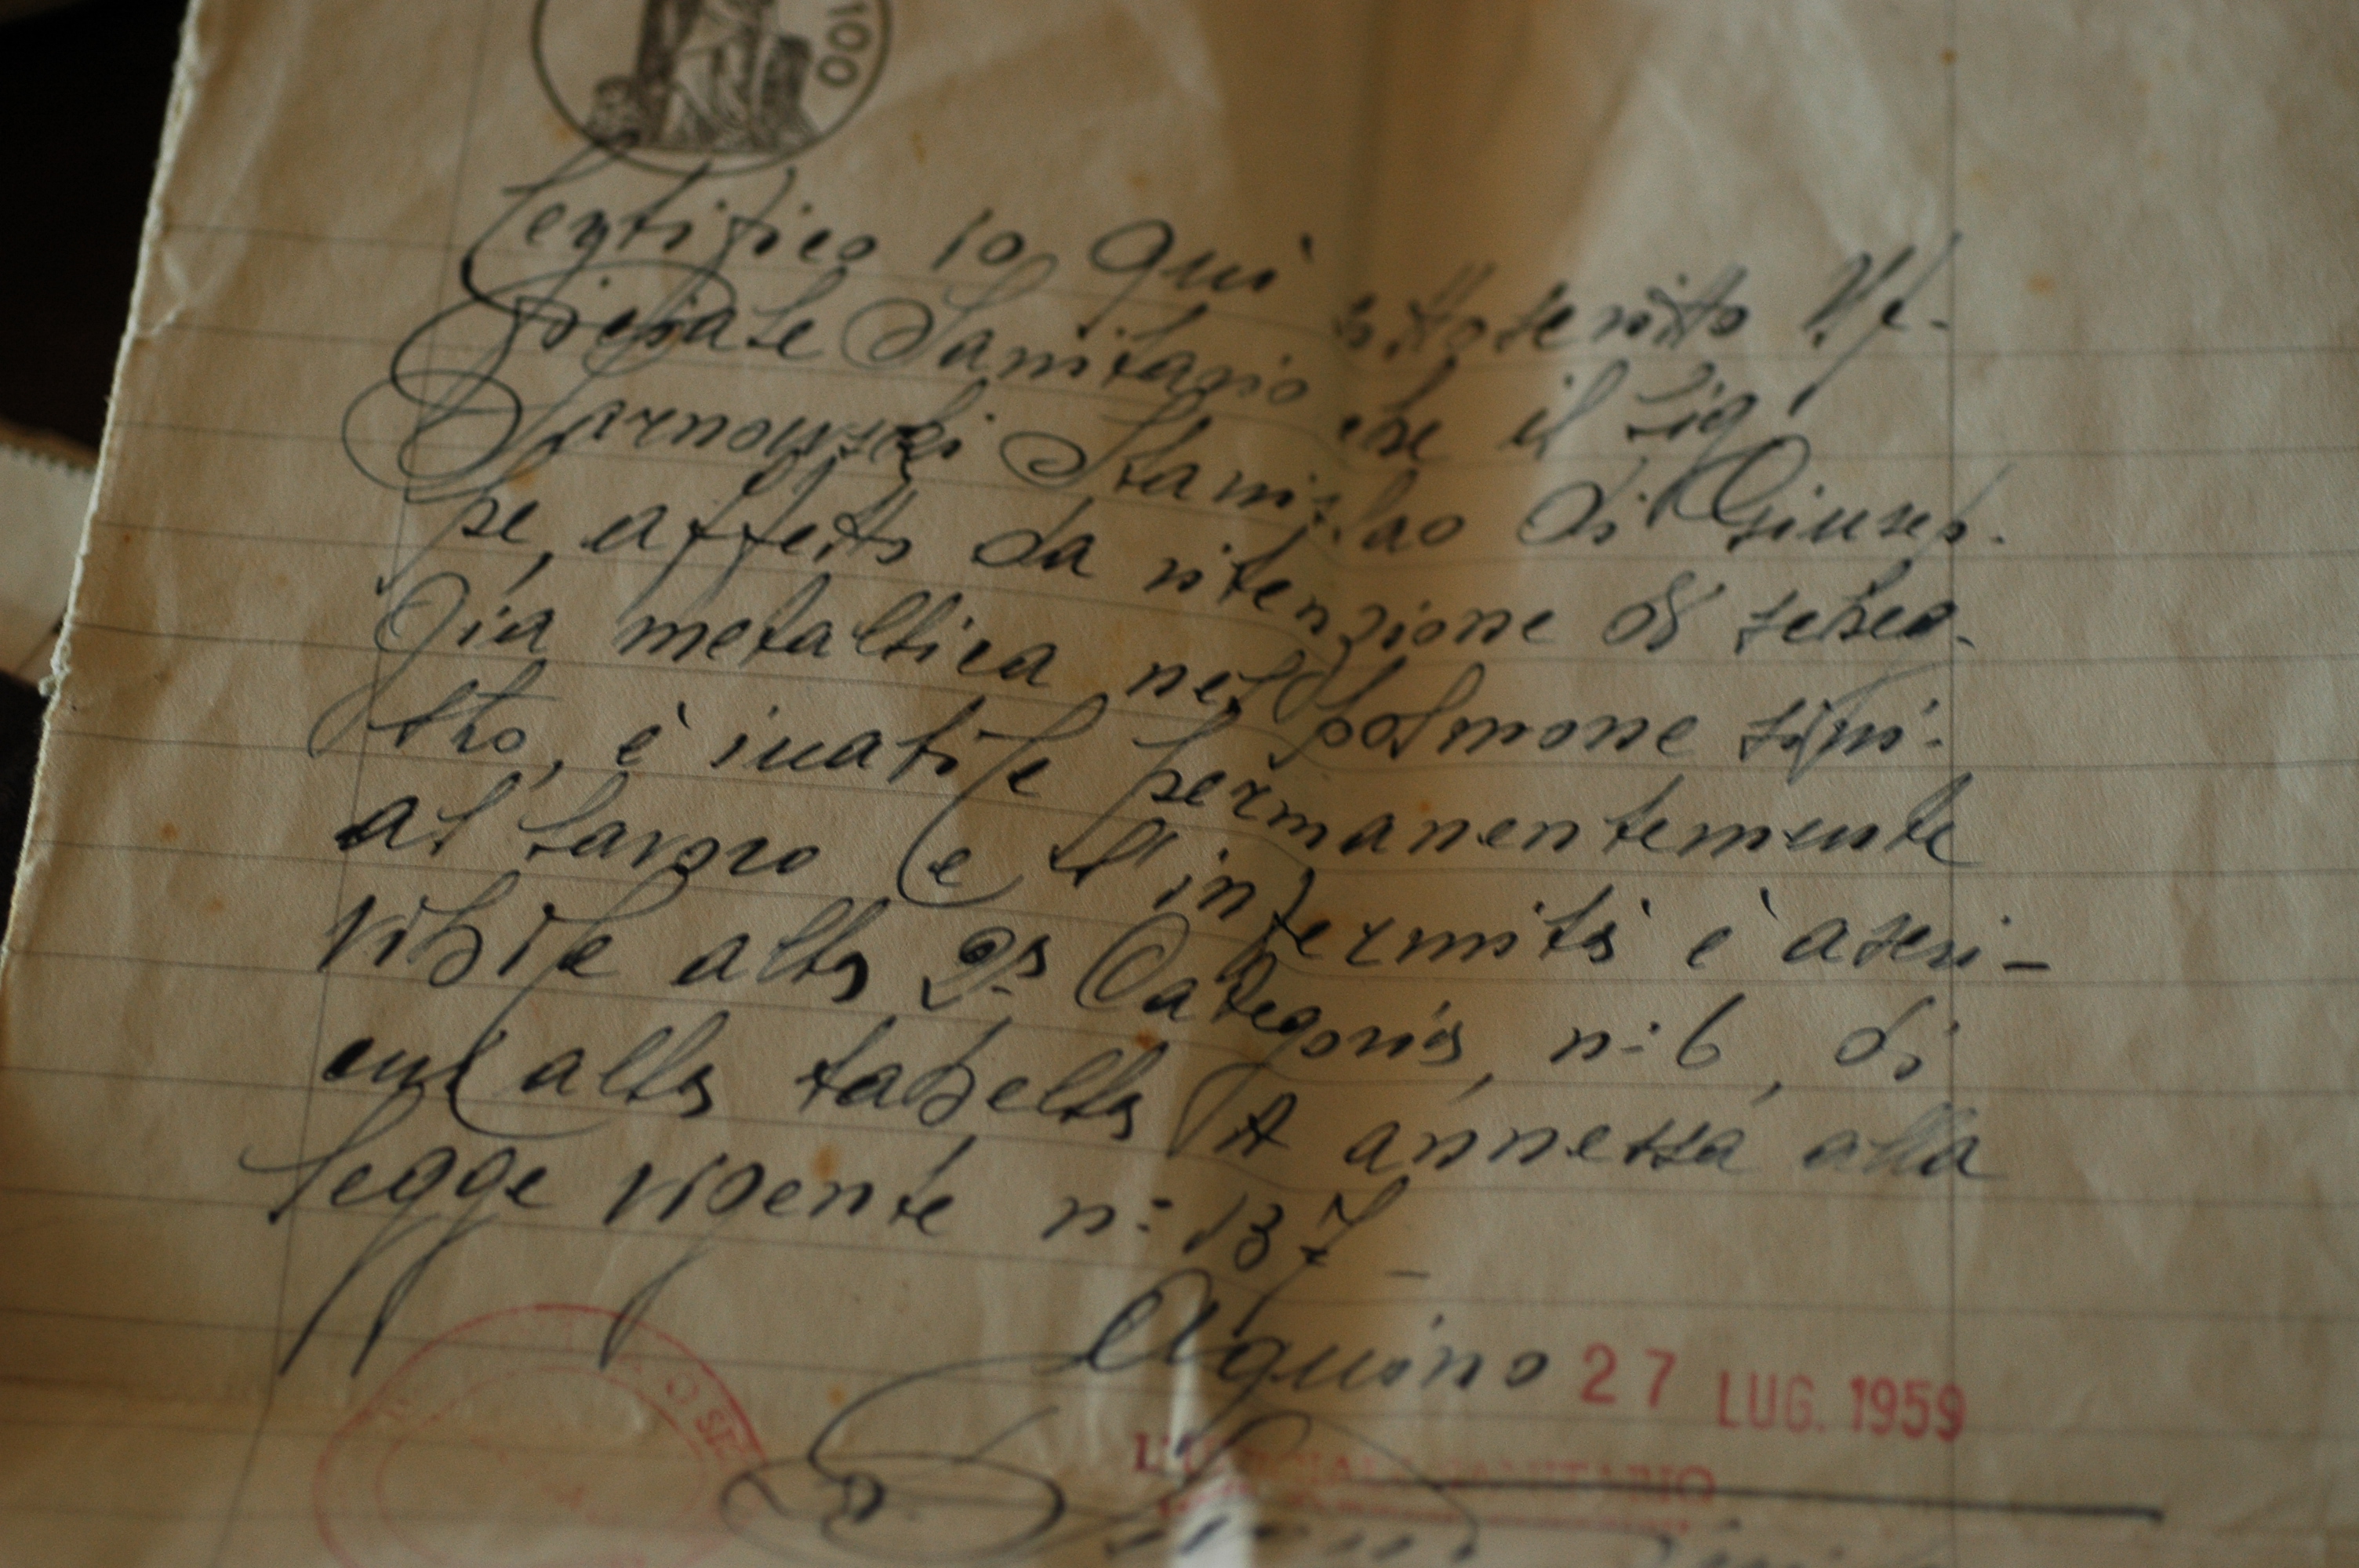 100
Certifico io qui sottoscritto Uf-
ficiale Sanitario che il Sig
Sarnowski Stanislao di Giusep-
pe, affetto da ritenzione di scheg-
gia metallica nel polmone sini-
stro, è inabile permanentemente
al lavoro e l'infermità è ascri-
vibile alla 2ª Categoria, n: 6, di
cui alla tabella A annessa alla
legge vigente n: 137 -
Aquino 27 LUG. 1959
L'UFFICIALE SANITARIO